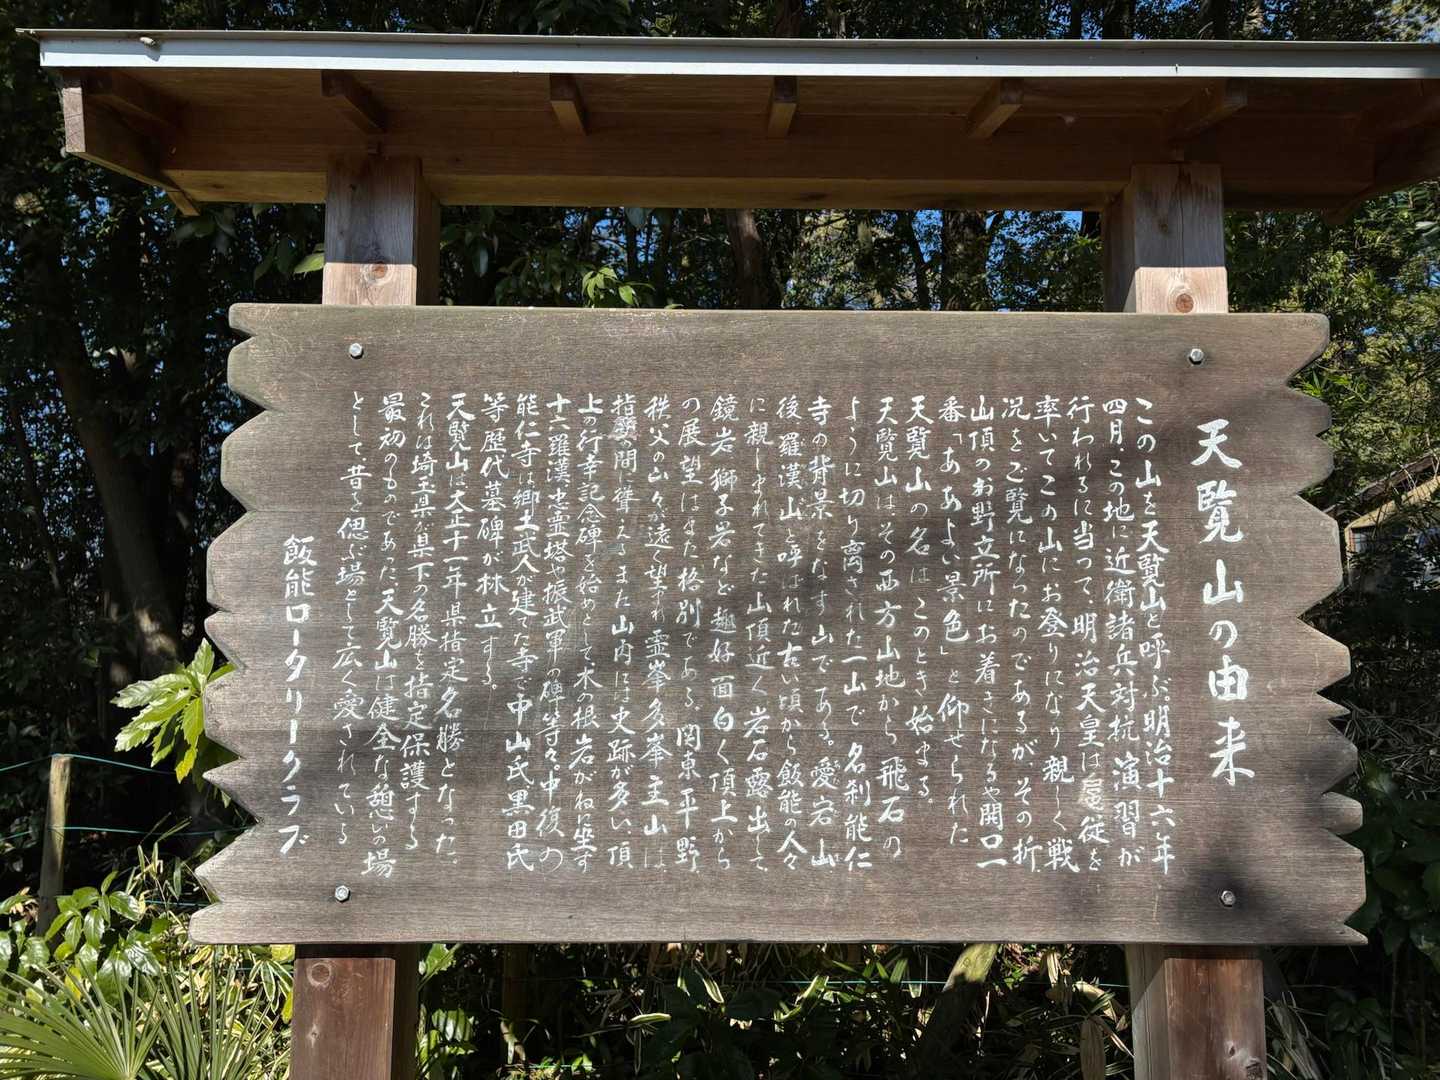 天覧山の由来
この山を天覧山と呼ぶ。明治十六年
四月、この地に近衛諸兵対抗演習が
行われるに当って、明治天皇は扈従を
率いてこの山にお登りになり親しく戦
況をご覧になったのであるが、その折、
山頂のお野立所にお着きになるや開口一
番「ああよい景色」と仰せられた
天覧山の名はこのとき始まる。
天覧山はその西方山地から飛石の
ように切り離された一山で名刹能仁
寺の背景をなす山である。愛宕山
後、羅漢山と呼ばれた古い頃から飯能の人々
に親しまれてきた山頂近く岩石露出して
鏡岩獅子岩など趣好面白く頂上から
の展望はまた格別である。関東平野、
秩父の山々が遠く望まれ霊峯多峯主山は、
指呼の間に聳えるまた山内には史跡が多い、頂
上の行幸記念碑を始めとして、木の根岩がねに坐す
十六羅漢忠霊塔や振武軍の碑等々。中復の
能仁寺は郷土武人が建てた寺で中山氏黒田氏
等歴代墓碑が林立する。
天覧山は大正十一年県指定名勝となった、
これは埼玉県が県下の名勝を指定保護する
最初のものであった、天覧山は健全な憩いの場
として、昔を偲ぶ場として広く愛されている
飯能ロータリークラブ